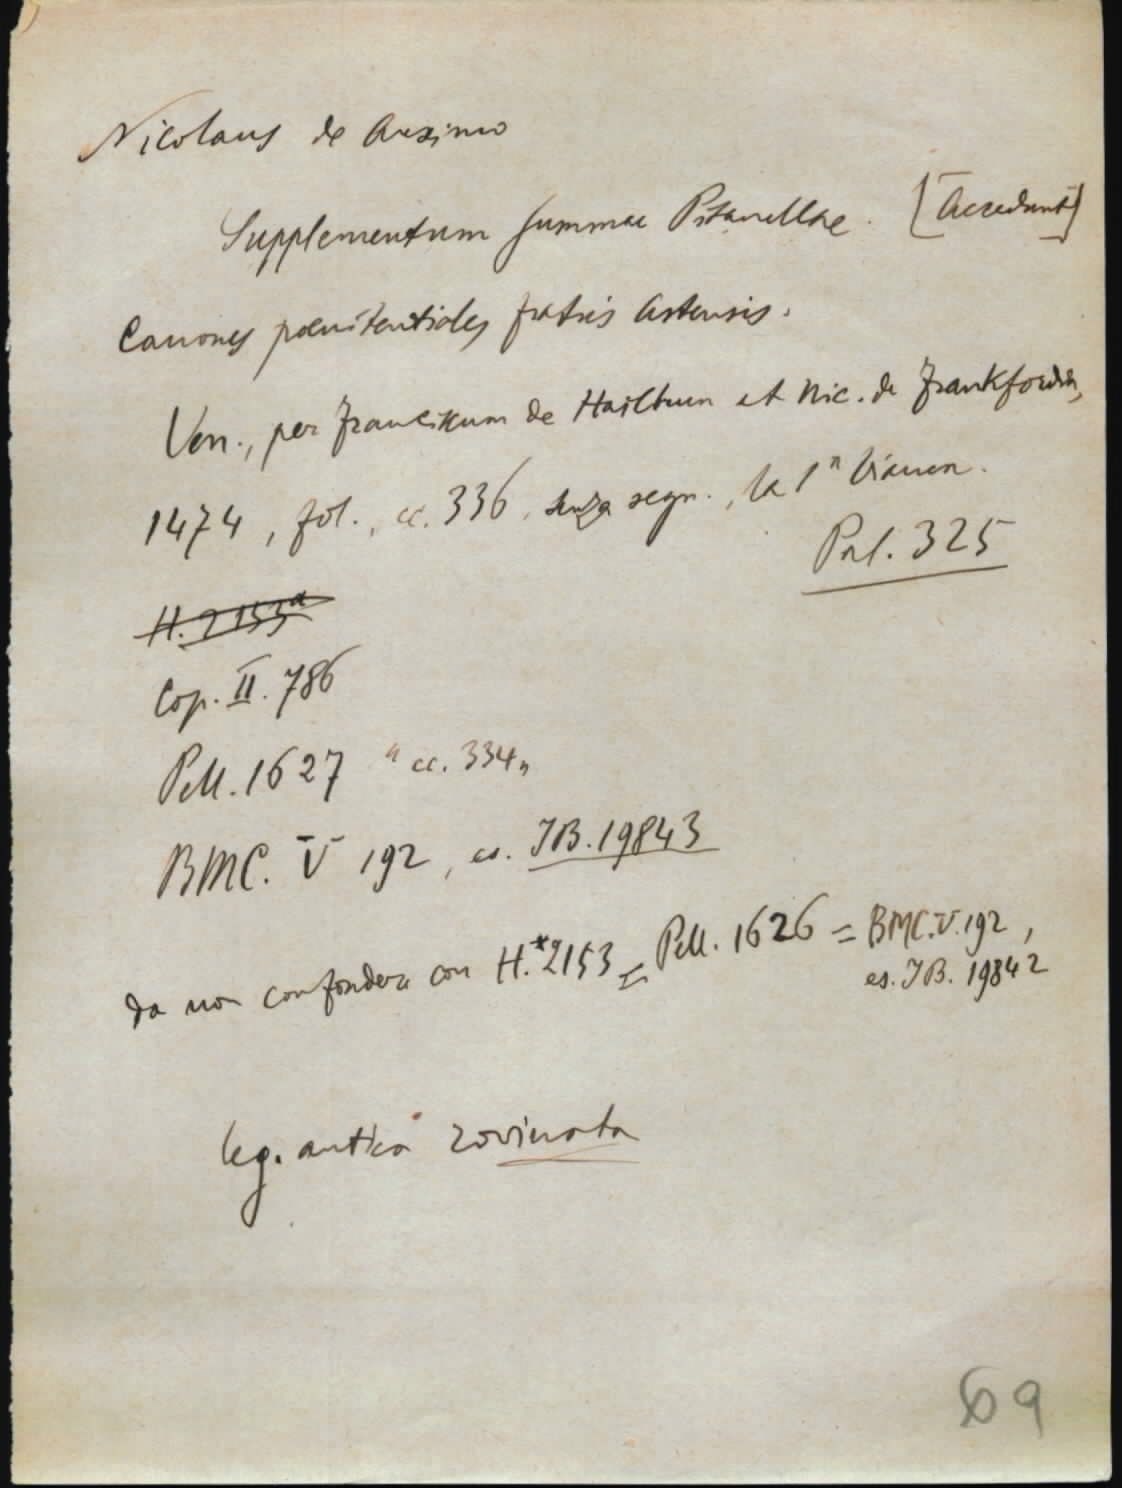 Nicolaus de Auximo
Supplementum summae Pisanellae. [Accedunt]
Canones poenitentiales fratris Astensis.
Ven., per Franciscum de Hailbrun et Nic. de Frankfordia,
1474, fol., cc. 336, senza segn., la 1ª bianca.
Pal. 325
H. 2153ª
Cop. II. 786
Pell. 1627 "cc. 334"
BMC. V 192, es. IB. 19843
da non confondere con H.*2153 = Pell. 1626 = BMC. V. 192,
es. IB. 19842
leg. antica rovinata
69